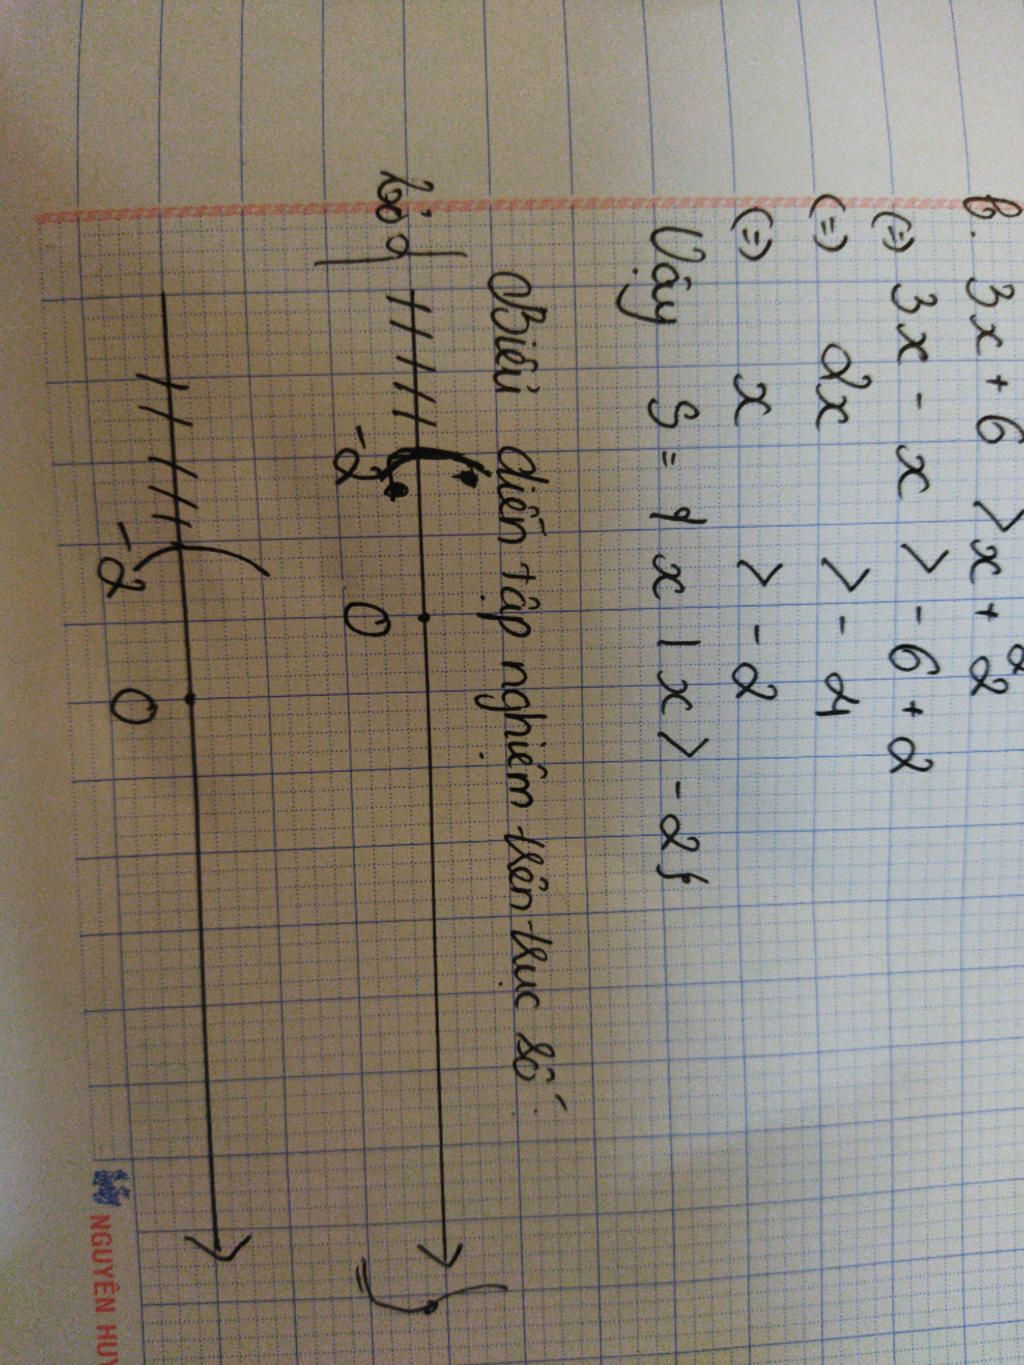 b. 3x + 6 > x + 2
(=) 3x - x > - 6 + 2
(=) 2x > - 4
(=) x > - 2
Vậy S = { x | x > - 2 }
Biểu diễn tập nghiệm trên trục số
loại
-2 0
-2 0
NGUYÊN HUY